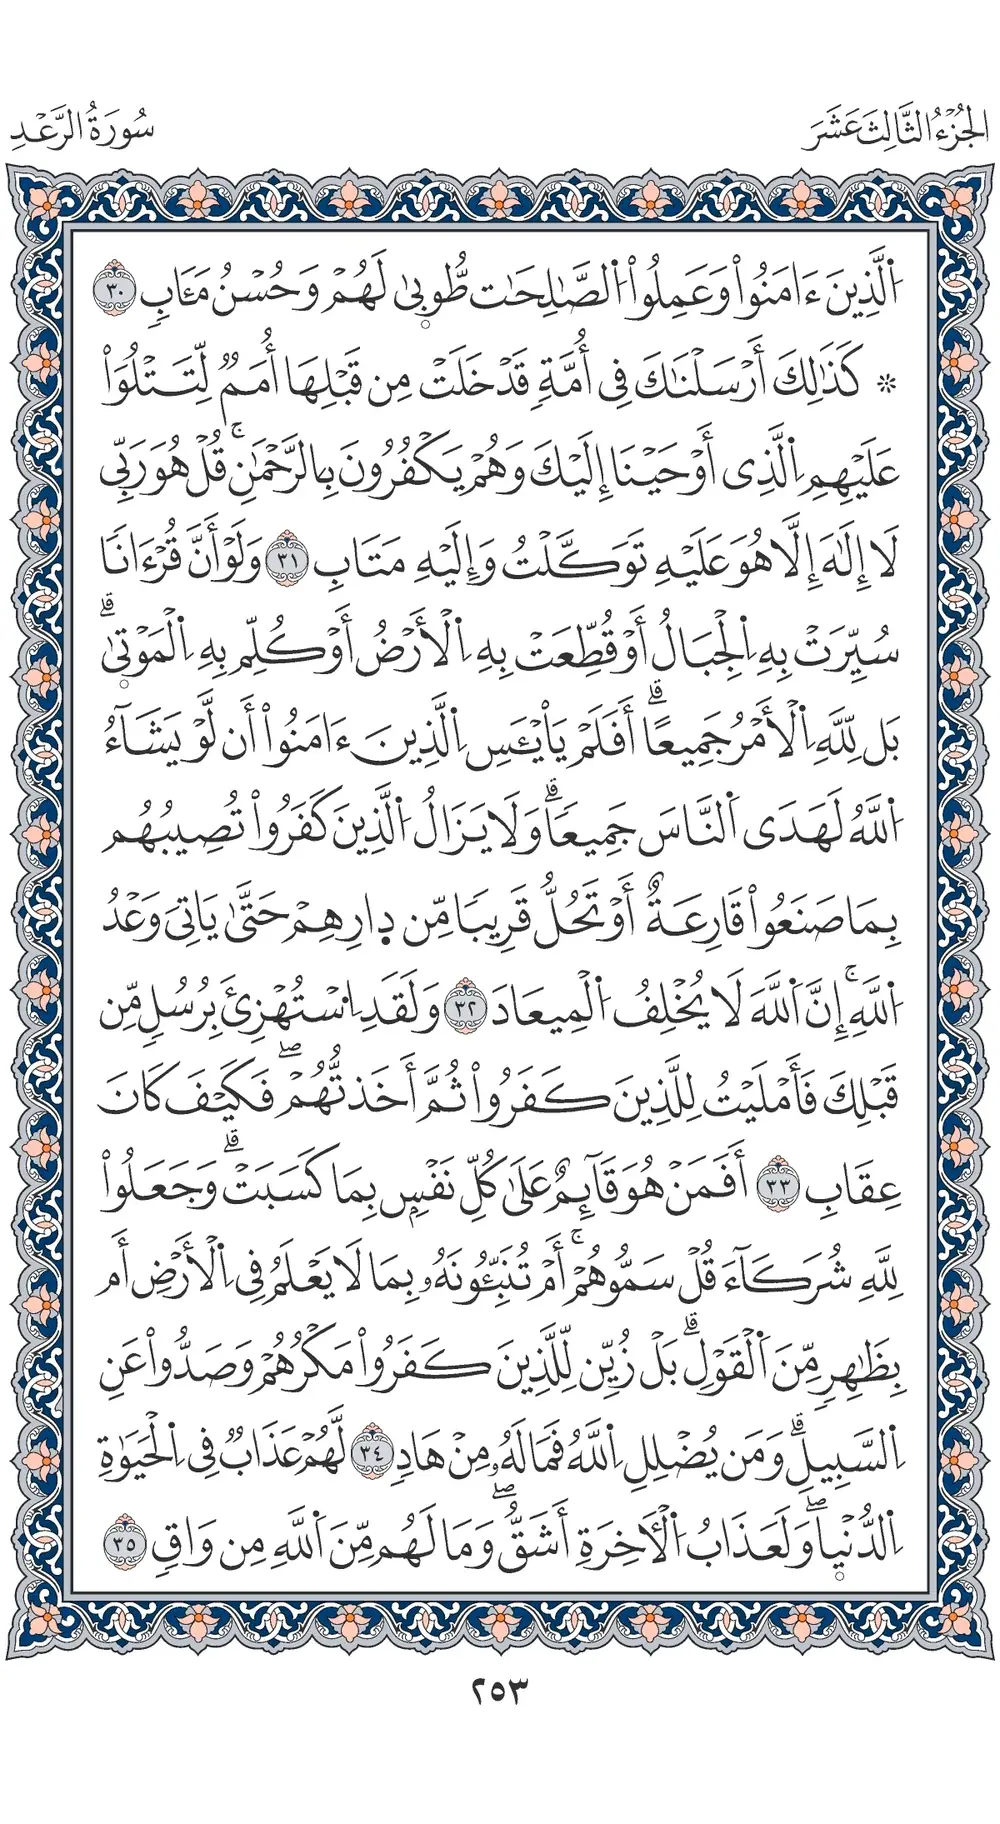 الجُزْءُ الثَّالِثَ عَشَرَ
سُورَةُ الرَّعْدِ
اَ۬لَّذِينَ ءَامَنُواْ وَعَمِلُواْ اُ۬لصَّٰلِحَٰتِ طُوب۪ىٰ لَهُمْ وَحُسْنُ مَـَٔابٖ ٣٠
۞ كَذَٰلِكَ أَرْسَلْنَٰكَ فِى أُمَّةٖ قَدْ خَلَتْ مِن قَبْلِهَا أُمَمٞ لِّتَتْلُوَاْ
عَلَيْهِمِ اِ۬لَّذِى أَوْحَيْنَا إِلَيْكَ وَهُمْ يَكْفُرُونَ بِالرَّحْمَٰنِۚ قُلْ هُوَ رَبِّى
لَا إِلَٰهَ إِلَّا هُوَ عَلَيْهِ تَوَكَّلْتُ وَإِلَيْهِ مَتَابِ ٣١ وَلَوْ أَنَّ قُرْءَانٗا
سُيِّرَتْ بِهِ اِ۬لْجِبَالُ أَوْ قُطِّعَتْ بِهِ اِ۬لْأَرْضُ أَوْ كُلِّمَ بِهِ اِ۬لْمَوْت۪ىٰۗ
بَل لِّلَّهِ اِ۬لْأَمْرُ جَمِيعًاۗ أَفَلَمْ يَاْيْـَٔسِ اِ۬لَّذِينَ ءَامَنُواْ أَن لَّوْ يَشَآءُ
اُ۬للَّهُ لَهَدَى اَ۬لنَّاسَ جَمِيعٗاۗ وَلَا يَزَالُ اُ۬لَّذِينَ كَفَرُواْ تُصِيبُهُم
بِمَا صَنَعُواْ قَارِعَةٌ أَوْ تَحُلُّ قَرِيبٗا مِّن د۪ارِهِمْ حَتَّىٰ يَاتِىَ وَعْدُ
اُ۬للَّهِۚ إِنَّ اَ۬للَّهَ لَا يُخْلِفُ اُ۬لْمِيعَادَ ٣٢ وَلَقَدِ اِ۟سْتُهْزِئَ بِرُسُلٖ مِّن
قَبْلِكَ فَأَمْلَيْتُ لِلَّذِينَ كَفَرُواْ ثُمَّ أَخَذتُّهُمْۖ فَكَيْفَ كَانَ
عِقَابِ ٣٣ أَفَمَنْ هُوَ قَآئِمٌ عَلَىٰ كُلِّ نَفْسِۭ بِمَا كَسَبَتْۗ وَجَعَلُواْ
لِلَّهِ شُرَكَآءَ قُلْ سَمُّوهُمْۚ أَمْ تُنَبِّـُٔونَهُۥ بِمَا لَا يَعْلَمُ فِى اِ۬لْأَرْضِ أَم
بِظَٰهِرٖ مِّنَ اَ۬لْقَوْلِۗ بَلْ زُيِّن لِّلَّذِينَ كَفَرُواْ مَكْرُهُمْ وَصَدُّواْ عَنِ
اِ۬لسَّبِيلِۗ وَمَن يُضْلِلِ اِ۬للَّهُ فَمَا لَهُۥ مِنْ هَادٖ ٣٤ لَّهُمْ عَذَابٞ فِى اِ۬لْحَيَوٰةِ
اِ۬لدُّنْي۪اۖ وَلَعَذَابُ اُ۬لْأٓخِرَةِ أَشَقُّۖ وَمَا لَهُم مِّنَ اَ۬للَّهِ مِن وَاقٖ ٣٥
٢٥٣